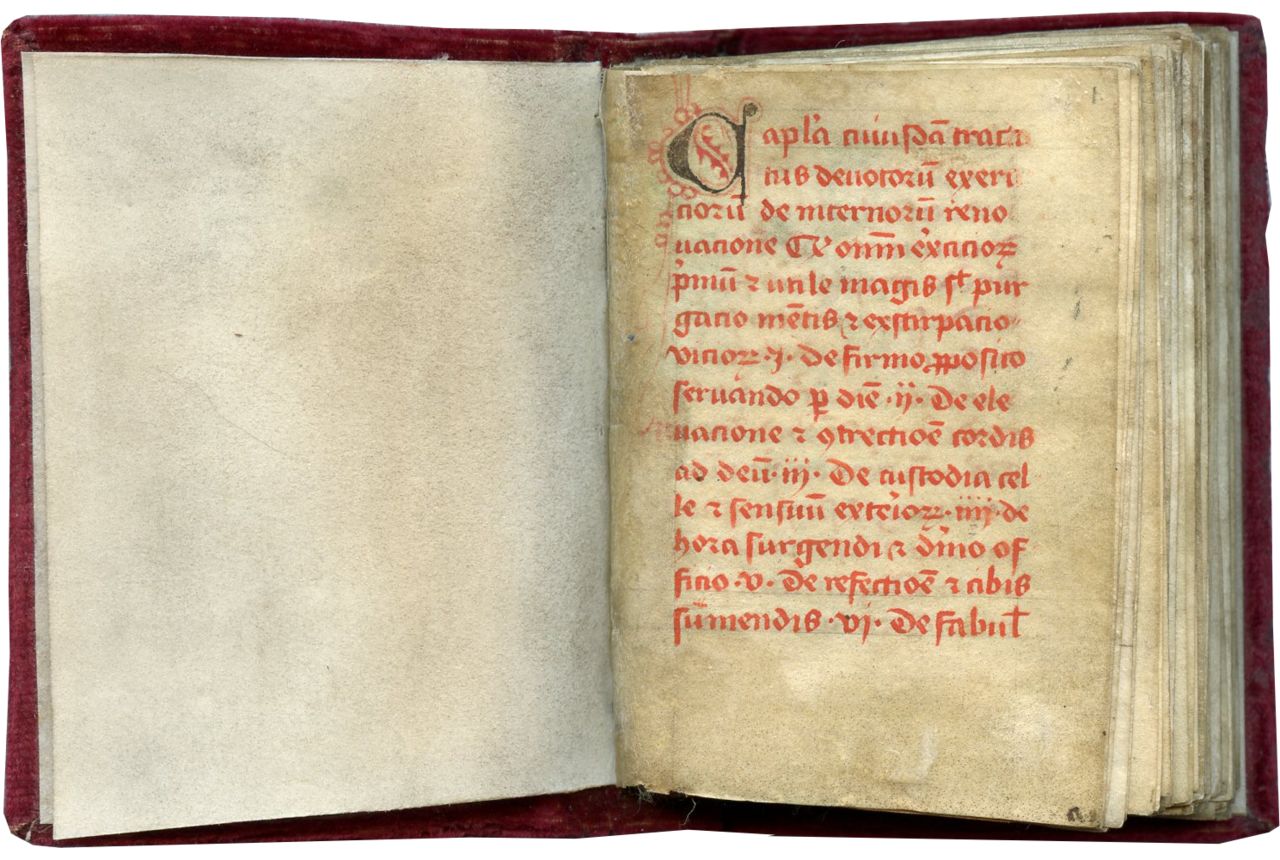 Capl'a cuiusdā tracta
tus deuotorū exerci
tiorū de internorū reno
uacione Et omīm exˀcicioꝝ
pˀmū ⁊ utile magis sꝫ pur
gacio mētis ⁊ exstirpacio
vicioꝝ ·j· de firmo ꝓposito
seruando ꝑ diē ·ij· De ele
uacione ⁊ ꝯtrectioē cordis
ad deū ·iij· De custodia cel
le ⁊ sensuū exteˀioꝝ ·iiij· de
hora surgendi ⁊ dˀino of
ficio ·v· De refectioē ⁊ cibis
sūmendis ·vj· De fabul'